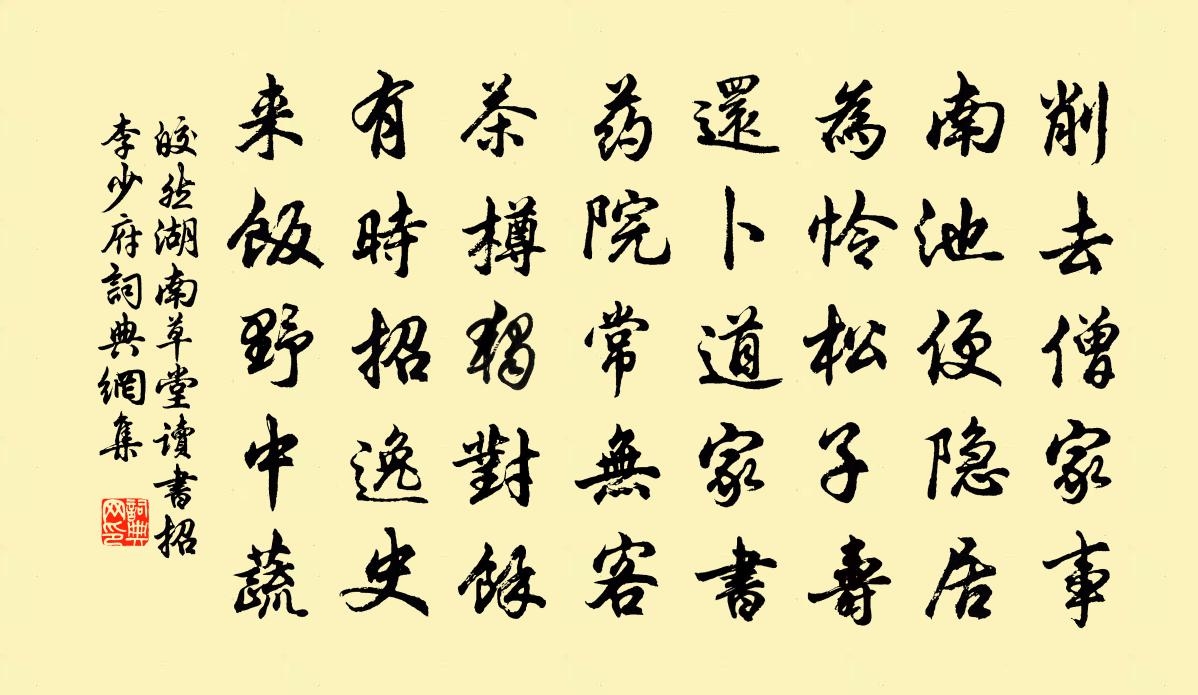 削去僧家事
南池便隐居
為怜松子壽
還卜道家書
药院常無客
茶樽獨對餘
有時招逸史
来飯野中蔬
皎然湖南草堂讀書招
李少府詞典網集
詞典網印